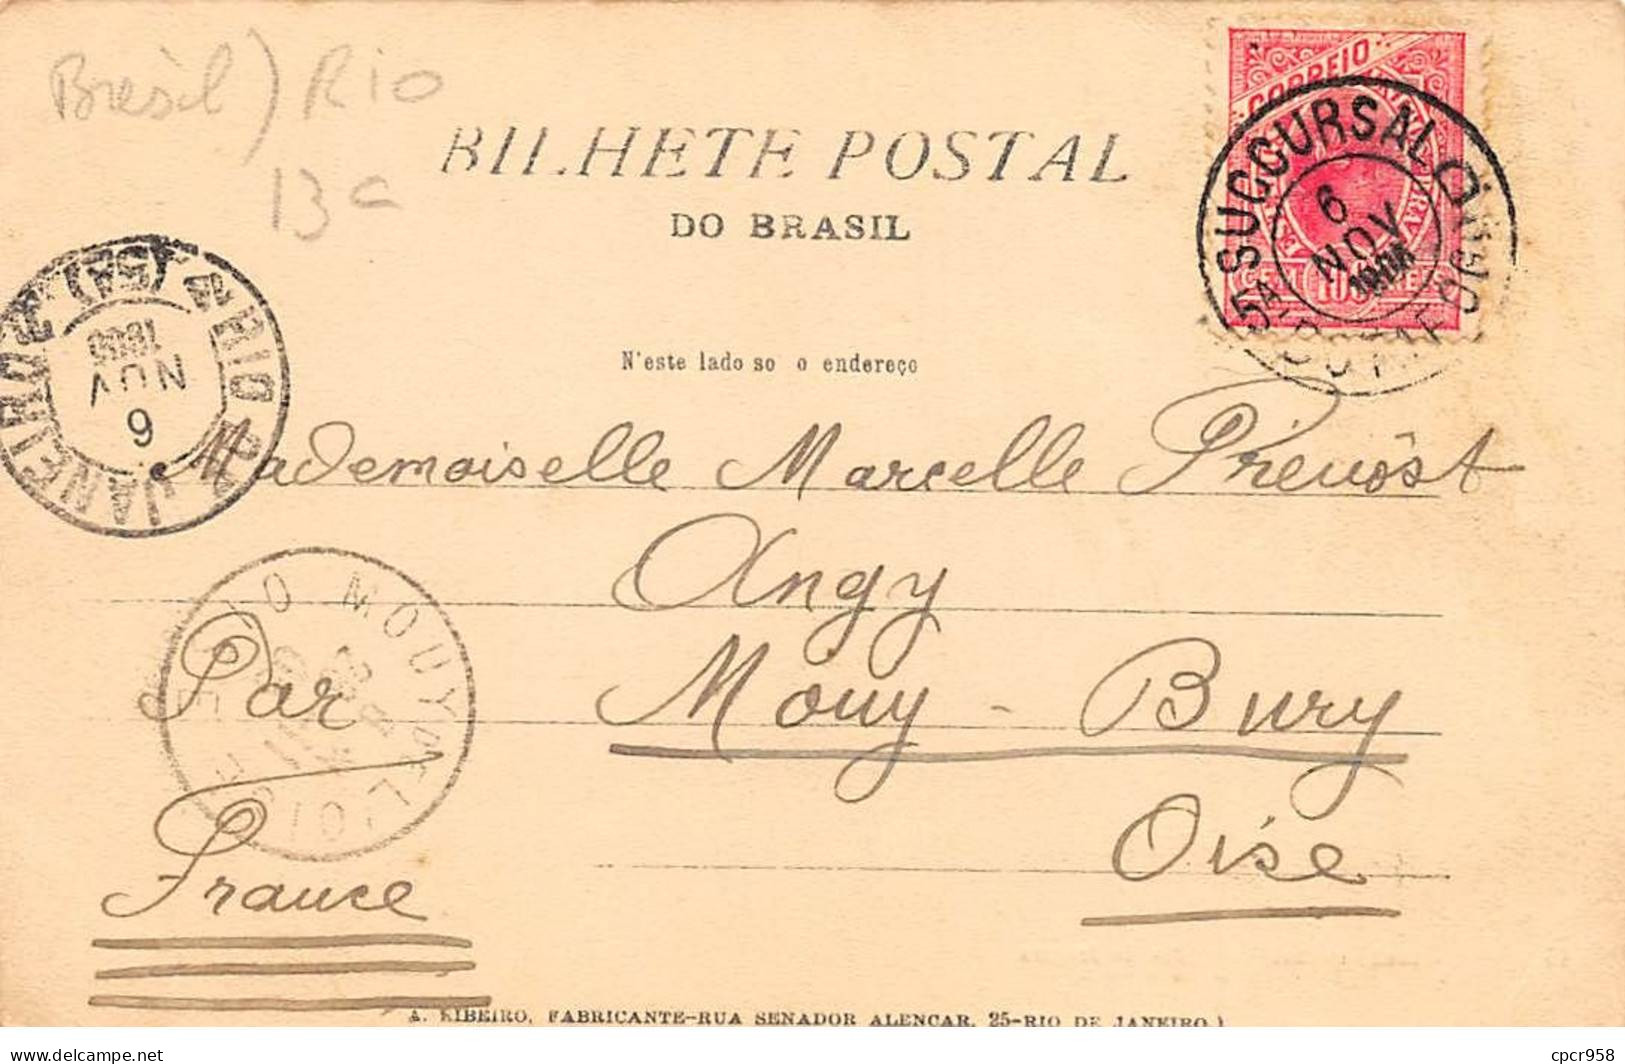 Brésil) Rio
13c
BILHETE POSTAL
DO BRASIL
CORREIO
SUCCURSAL
5A
6
NOV
RIO
JANEIRO
(5A)
6
NOV
N'este lado so o endereço
Mademoiselle Marcelle Prévost
Angy
Par Mouy - Bury
Oise
France
MOUY DE L'OISE
A. RIBEIRO, FABRICANTE-RUA SENADOR ALENCAR, 25-RIO DE JANEIRO
Delcampe.net
cpcr958